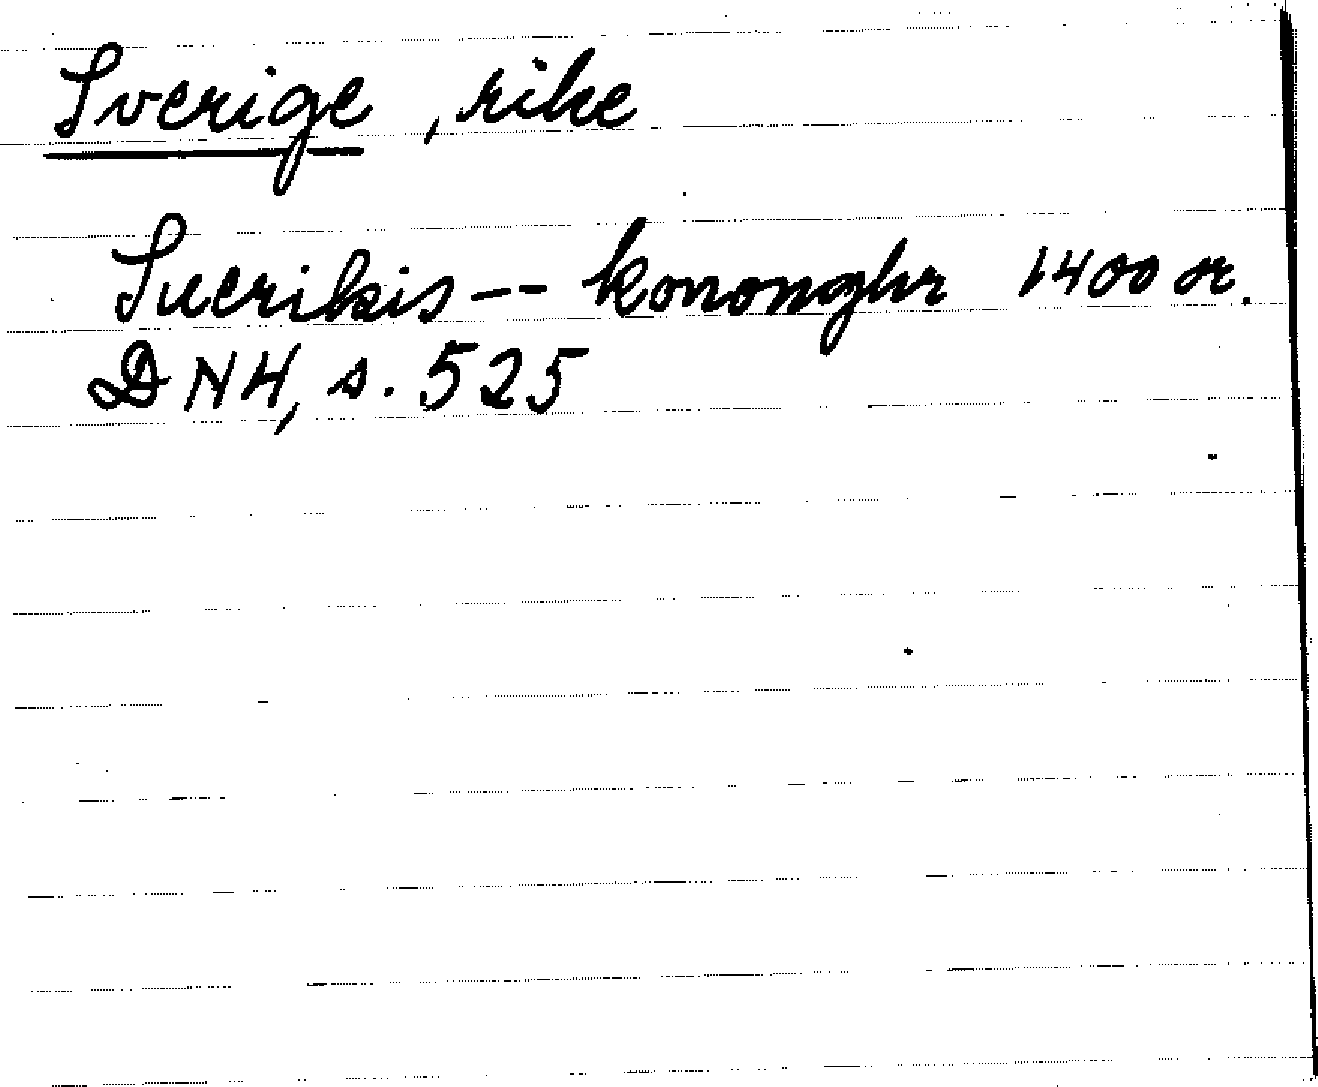 Sverige, rike
Suerikis -- kononghr 1400 or.
DN4, s. 525